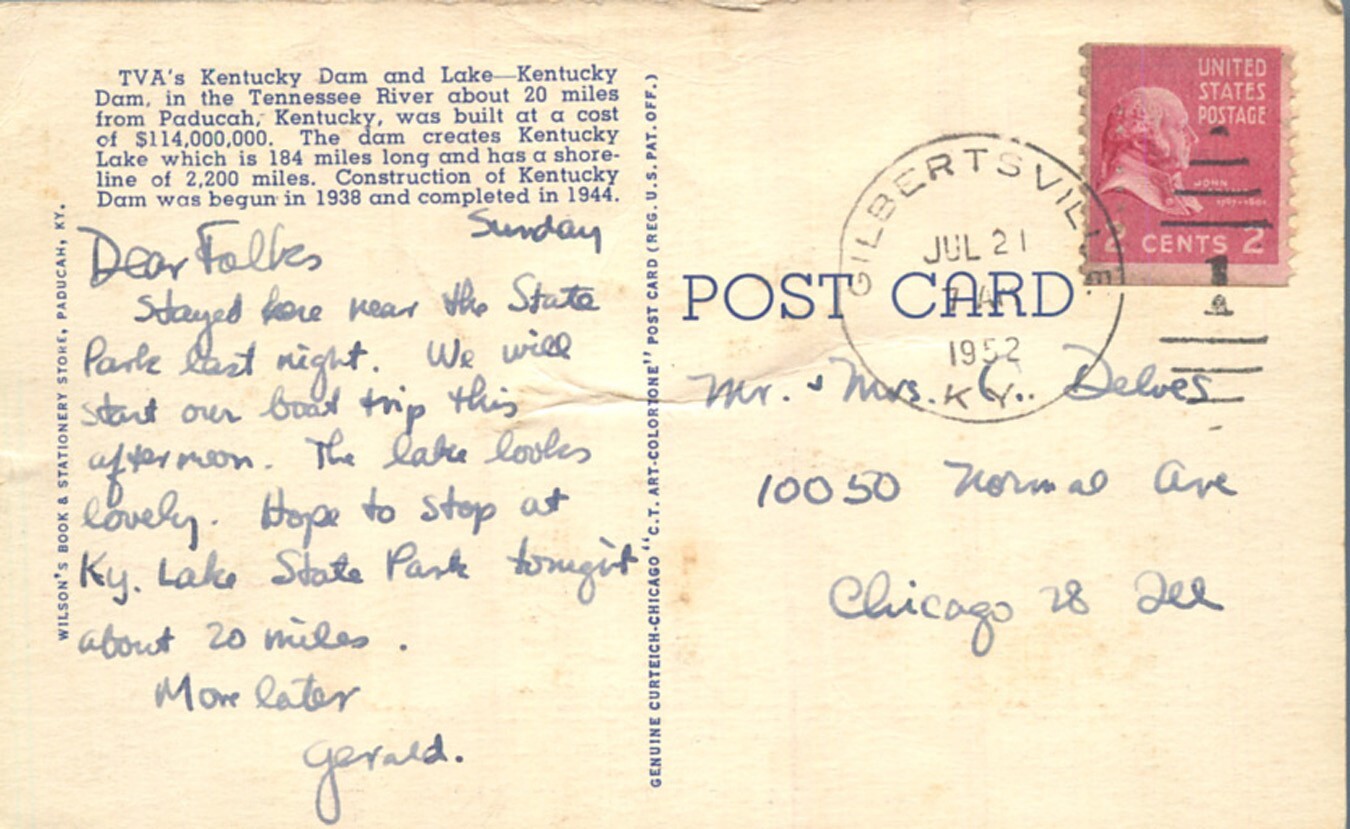 TVA's Kentucky Dam and Lake—Kentucky
Dam, in the Tennessee River about 20 miles
from Paducah, Kentucky, was built at a cost
of $114,000,000. The dam creates Kentucky
Lake which is 184 miles long and has a shore-
line of 2,200 miles. Construction of Kentucky
Dam was begun in 1938 and completed in 1944.
Sunday
Dear Folks
Stayed here near the State
Park last night. We will
start our boat trip this
afternoon. The lake looks
lovely. Hope to stop at
Ky. Lake State Park tonight
about 20 miles.
More later
Gerald.
WILSON'S BOOK & STATIONERY STORE, PADUCAH, KY.
GENUINE CURTEICH-CHICAGO "C.T. ART-COLORTONE" POST CARD (REG. U.S. PAT. OFF.)
POST CARD
UNITED
STATES
POSTAGE
JOHN
2 CENTS 2
GILBERTSVILLE
JUL 21
1952
KY.
Mr. & Mrs. C. Delves
10050 Normal Ave
Chicago 28 Ill